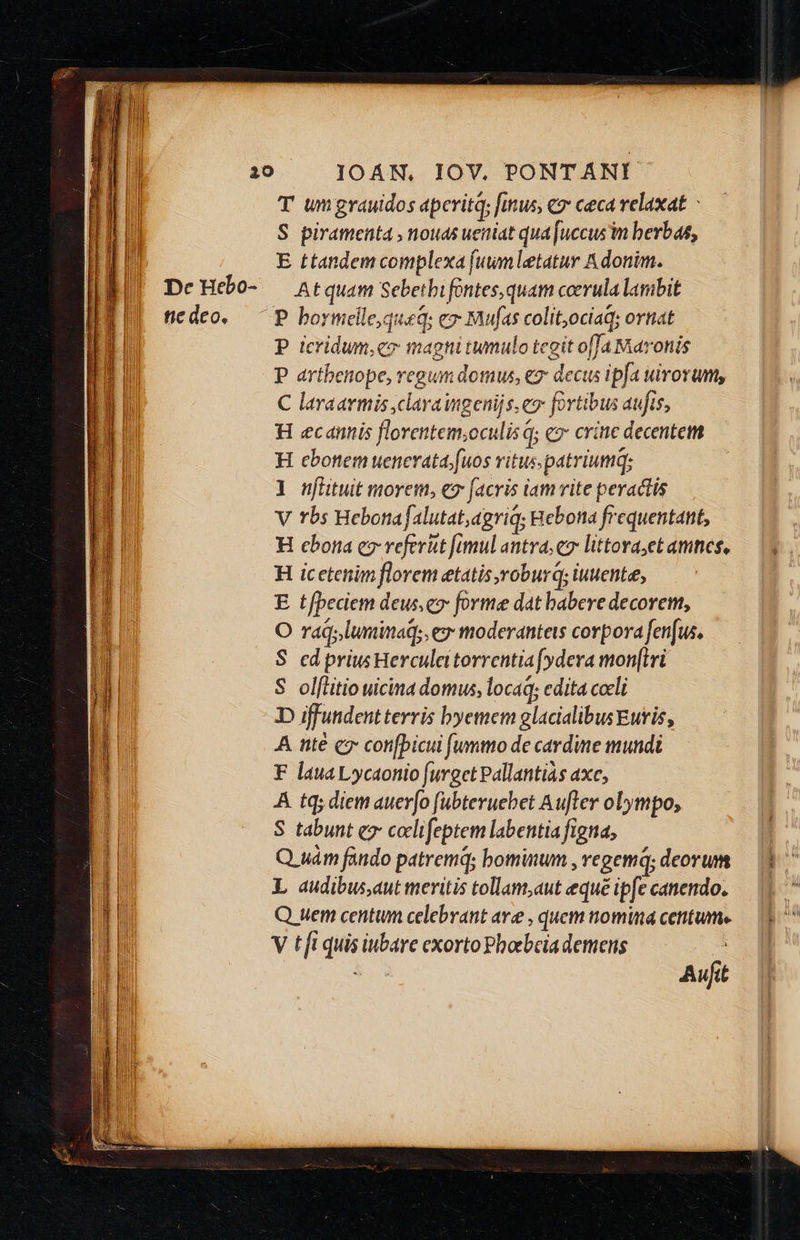 20 IOAN. IOV. PONTANI
T um grauidos aperitq; ſinus, & cæca relaxat
S piramenta, nouas ueniat qua ſuccus in herbas,
E t tandem complexa ſuum lætatur Adonim.
De Hebo- At quam Sebethi fontes, quam cœrula lambit
ne deo. P hormelle, quæq; & Muſas colit, ociaq; ornat
P ieridum, & magni tumulo tegit oſſa Maronis
P arthenope, regum domus, & decus ipſa uirorum,
C lara armis, clara ingenijs, & fortibus auſis,
H æc annis florentem, oculis q; & crine decentem
H ebonem uenerata, ſuos ritus, patriumq;
I nſtituit morem, & ſacris iam rite peractis
V rbs Hebona ſalutat, agriq; Hebona frequentant,
H ebona & referũt ſimul antra, & littora, et amnes.
H ic etenim florem ætatis, roburq; iuuentæ,
E t ſpeciem deus, & formæ dat habere decorem,
O raq;, luminaq;, & moderanteis corpora ſenſus.
S ed prius Herculei torrentia ſydera monſtri
S olſtitio uicina domus, locaq; edita cœli
D iffundent terris hyemem glacialibus Euris,
A nte & conſpicui ſummo de cardine mundi
F laua Lycaonio ſurget Pallantiàs axe,
A tq; diem auerſo ſubteruehet Auſter olympo,
S tabunt & cœli ſeptem labentia ſigna,
Q uàm fando patremq; hominum, regemq; deorum
L audibus, aut meritis tollam, aut æquẽ ipſe canendo.
Q uem centum celebrant aræ, quem nomina centum.
V t ſi quis iubare exorto Phœbeia demens
Auſit